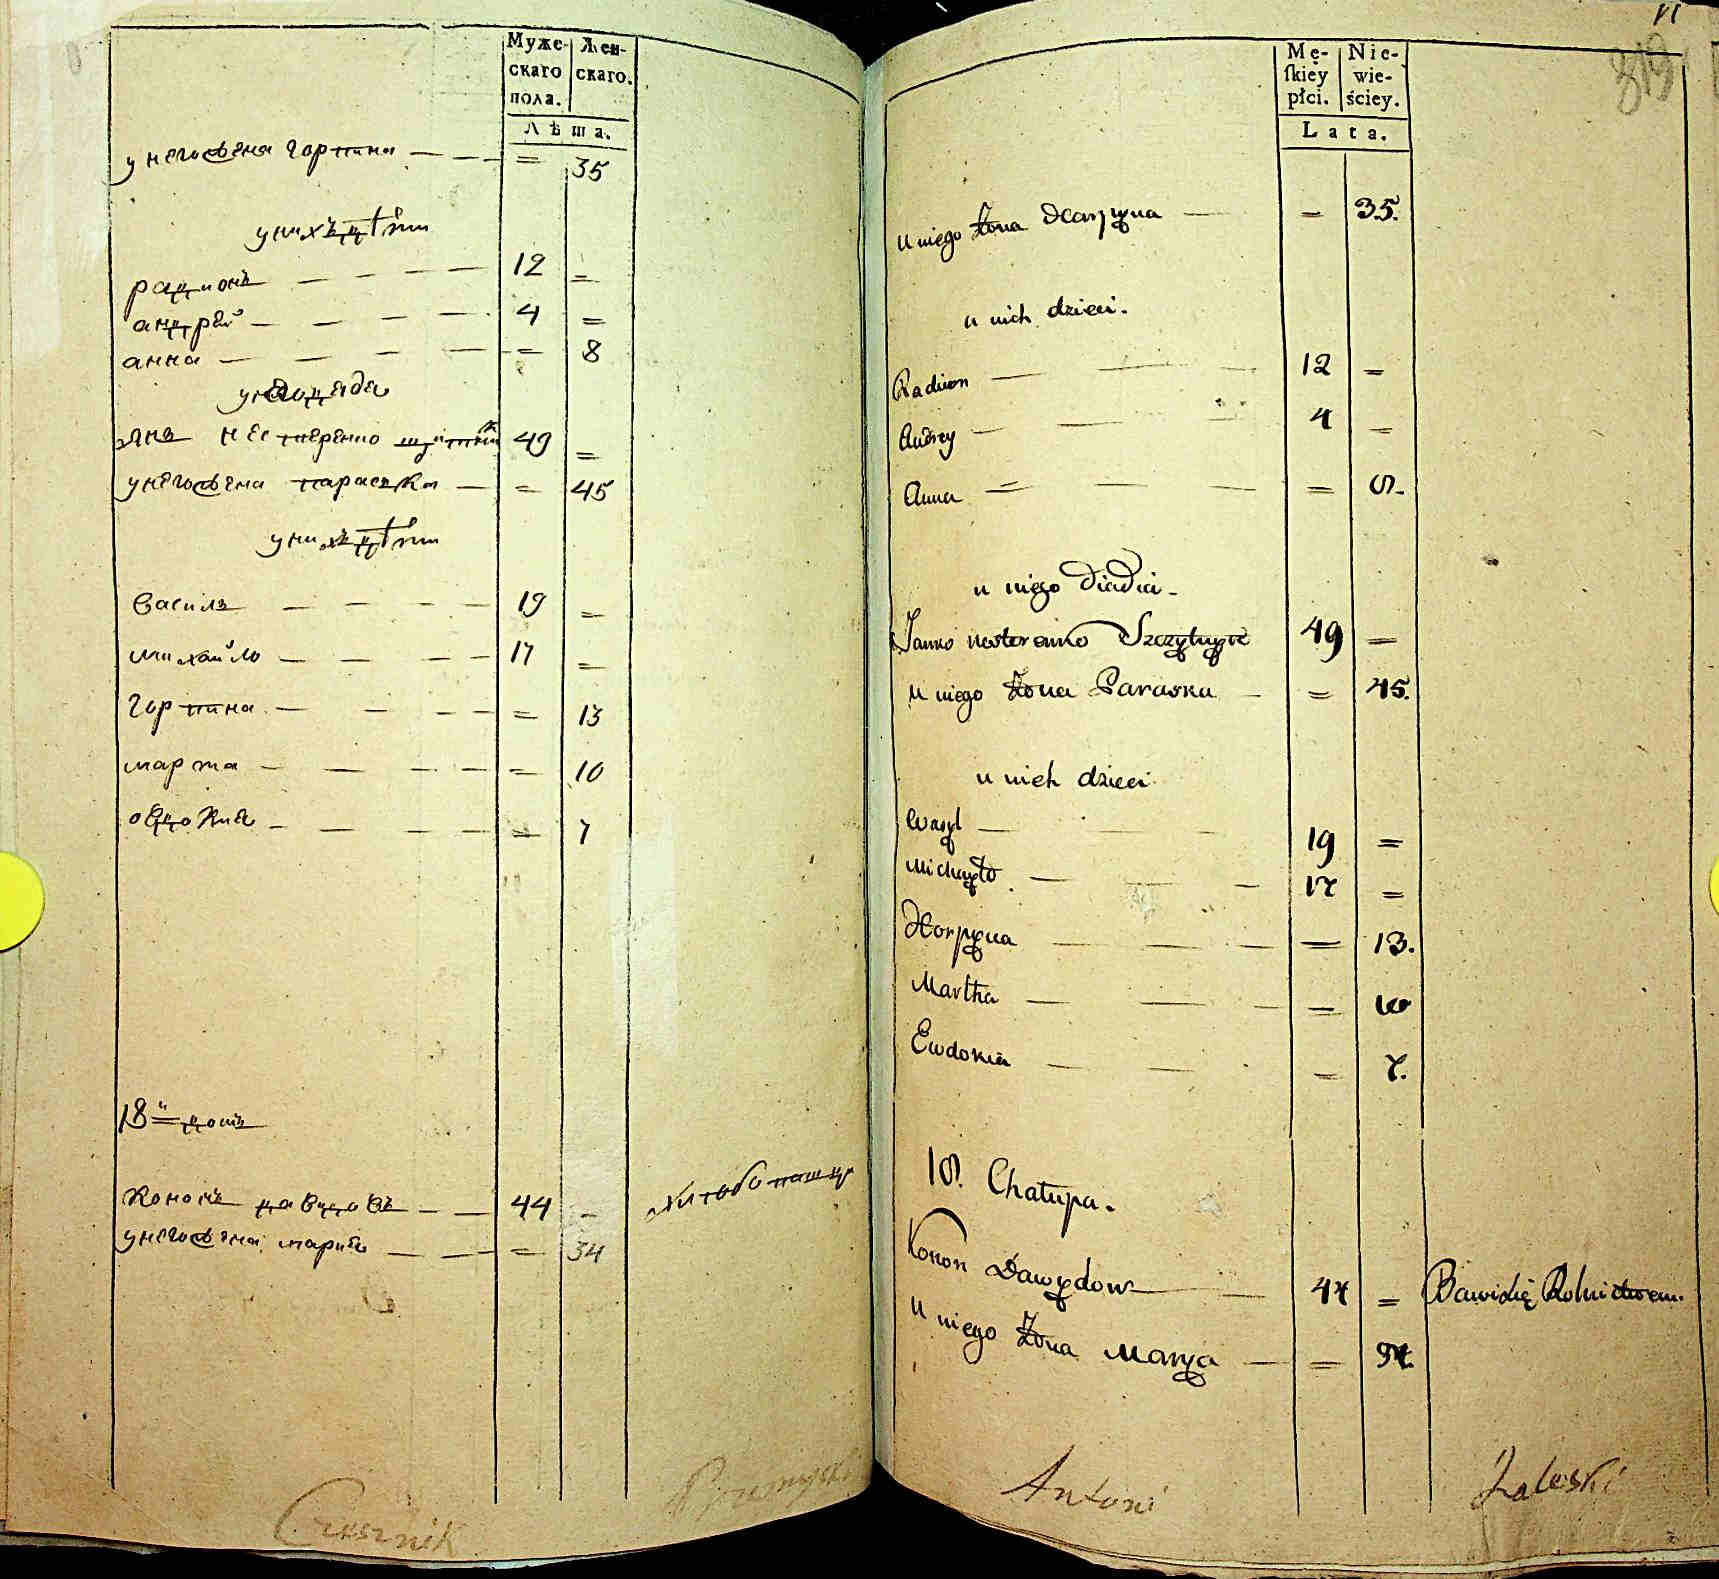 Муже- Жен-
скаго скаго.
пола.
Лѣта.
у него жена горпина — — = 35
у нихъ дѣти
радионъ — — — — 12 =
андрей — — — — 4 =
анна — — — — = 8
у него дядя
нестеренко 49 =
у него жена параска — = 45
у нихъ дѣти
василь — — — — 19 =
михайло — — — — 17 =
горпина — — — — = 13
марта — — — — = 10
овдокия — — — — = 7
18й домъ
кононъ давидовъ — — 44 = хлѣбопашцъ
у него жена мария — — = 34
Czesznik
Mę- Nie-
skiey wie-
płci. ściey.
Lata.
u niego żona Horpyna — = 35.
u nich dzieci.
Radion — — — 12 =
Andrey — — — 4 =
Anna — — — = 8.
u niego diadia.
Janko nesterenko 49 =
u niego żona Paraska — = 45.
u nich dzieci
Wasyl — — — 19 =
Michayło — — — 17 =
Horpyna — — — = 13.
Martha — — — = 10
Ewdokia — — — = 7.
18. Chałupa.
Konon Dawydow — — 44 = Bawi się Rolnictwem.
u niego żona Marya — = 34.
Antoni Zaleski